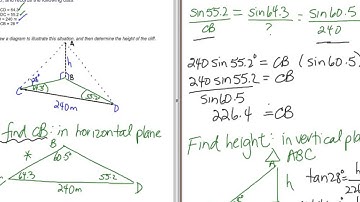 CD = 64.3°
DC = 55.2°
= 240 m
CB = 28 °
w a diagram to illustrate this situation, and then determine the height of the cliff.
A
28°
h
B
64.3
55.2
C
240m
D
find CB: in horizontal plane
*
B
60.5°
64.3
55.2
C
240m
D
sin55.2 = sin64.3 = sin60.5
CB ? 240
240 sin55.2° = CB (sin60.5)
240 sin55.2 = CB
sin60.5
226.4 = CB
Find height: in vertical plan
A
ABC
h
tan28° = h